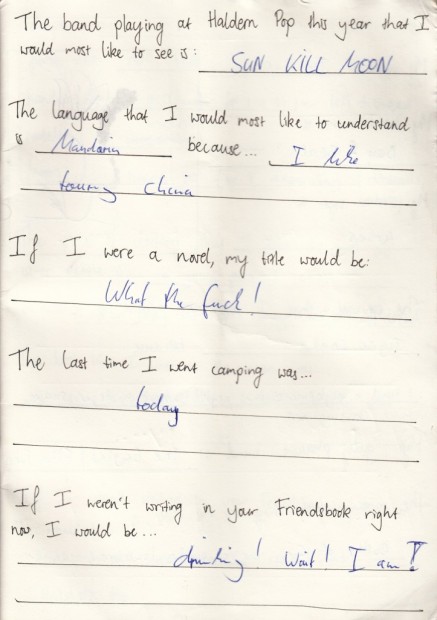 The band playing at Haldern Pop this year that I
would most like to see is: SUN KILL MOON
The language that I would most like to understand
is Mandarin because... I like
touring china
If I were a novel, my title would be:
What the fuck!
The last time I went camping was...
today
If I weren't writing in your Friendsbook right
now, I would be...
drinking! Wait! I am!